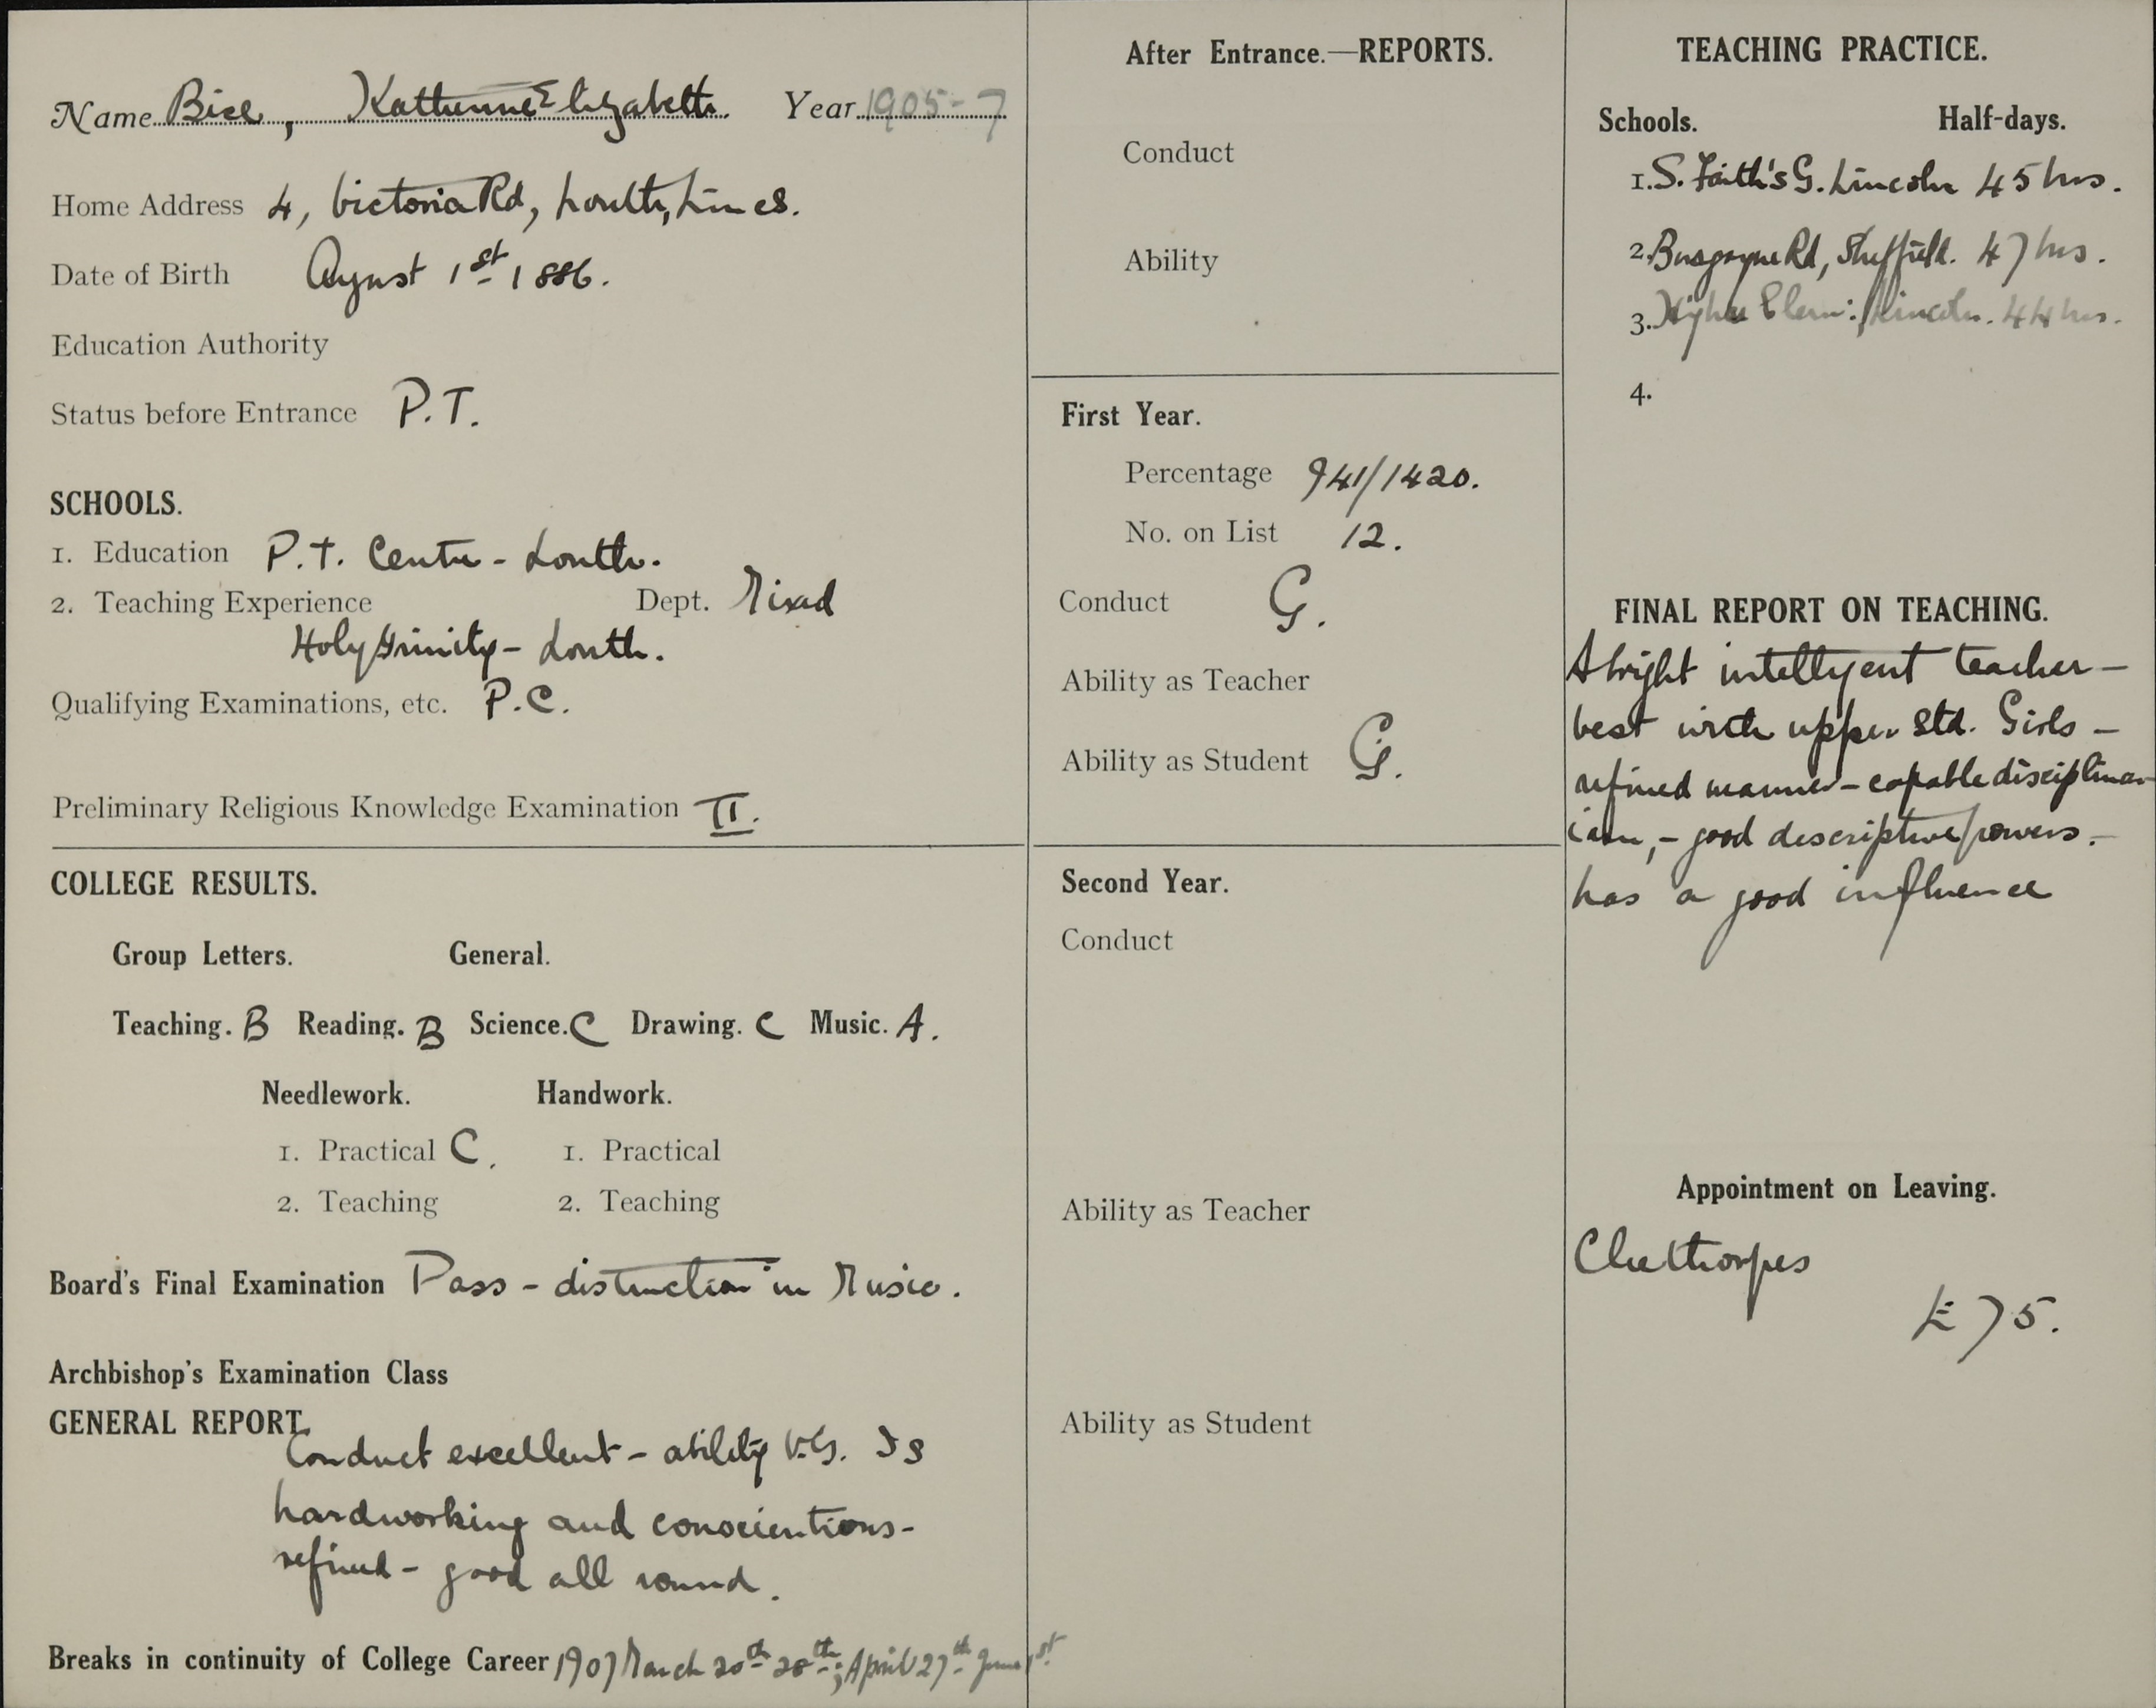 Name Bice, Katherine Elizabeth. Year 1905-7
Home Address 4, Victoria Rd, Louth, Lincs.
Date of Birth August 1st 1886.
Education Authority
Status before Entrance P.T.
SCHOOLS.
1. Education P.T. Centre - Louth.
2. Teaching Experience Dept. Mixed
Holy Trinity - Louth.
Qualifying Examinations, etc. P.C.
Preliminary Religious Knowledge Examination II.
COLLEGE RESULTS.
Group Letters. General.
Teaching. B Reading. B Science. C Drawing. C Music. A.
Needlework. Handwork.
1. Practical C. 1. Practical
2. Teaching 2. Teaching
Board's Final Examination Pass - distinction in Music.
Archbishop's Examination Class
GENERAL REPORT.
Conduct excellent - ability V.G. Is
hardworking and conscientious -
refined - good all round.
Breaks in continuity of College Career 1907 March 20th 28th; April 27th June 1st.
After Entrance.—REPORTS.
Conduct
Ability
First Year.
Percentage 941/1420.
No. on List 12.
Conduct G.
Ability as Teacher
Ability as Student G.
Second Year.
Conduct
Ability as Teacher
Ability as Student
TEACHING PRACTICE.
Schools. Half-days.
1. S. Faith's G. Lincoln 45 hrs.
2. Burgoyne Rd, Sheffield. 47 hrs.
3. Higher Elem: Lincoln. 44 hrs.
4.
FINAL REPORT ON TEACHING.
A bright intelligent teacher -
best with upper Std. Girls -
refined manner - capable disciplinar-
ian, - good descriptive powers. -
has a good influence
Appointment on Leaving.
Cleethorpes
£75.